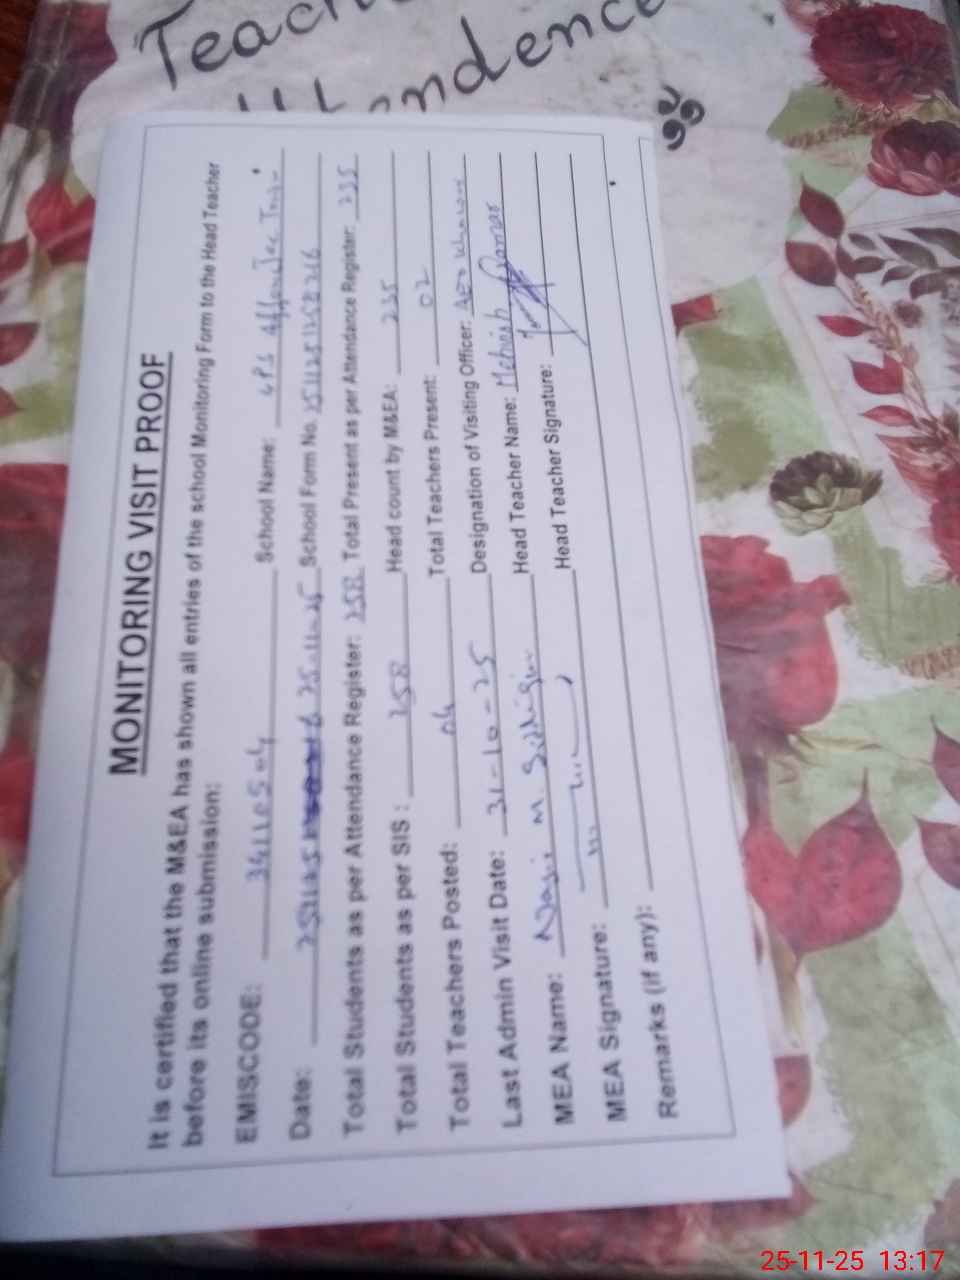 Teach
ndence
MONITORING VISIT PROOF
It is certified that the M&EA has shown all entries of the school Monitoring Form to the Head Teacher
before its online submission:
EMISCODE: School Name:
Date: 25-11-25 School Form No.
Total Students as per Attendance Register: 258 Total Present as per Attendance Register: 235
Total Students as per SIS : 258 Head count by M&EA: 235
Total Teachers Posted: 04 Total Teachers Present: 02
Last Admin Visit Date: 31-10-25 Designation of Visiting Officer: AEO
MEA Name: M. Head Teacher Name: Mehvish
MEA Signature: Head Teacher Signature:
Remarks (if any):
25-11-25 13:17